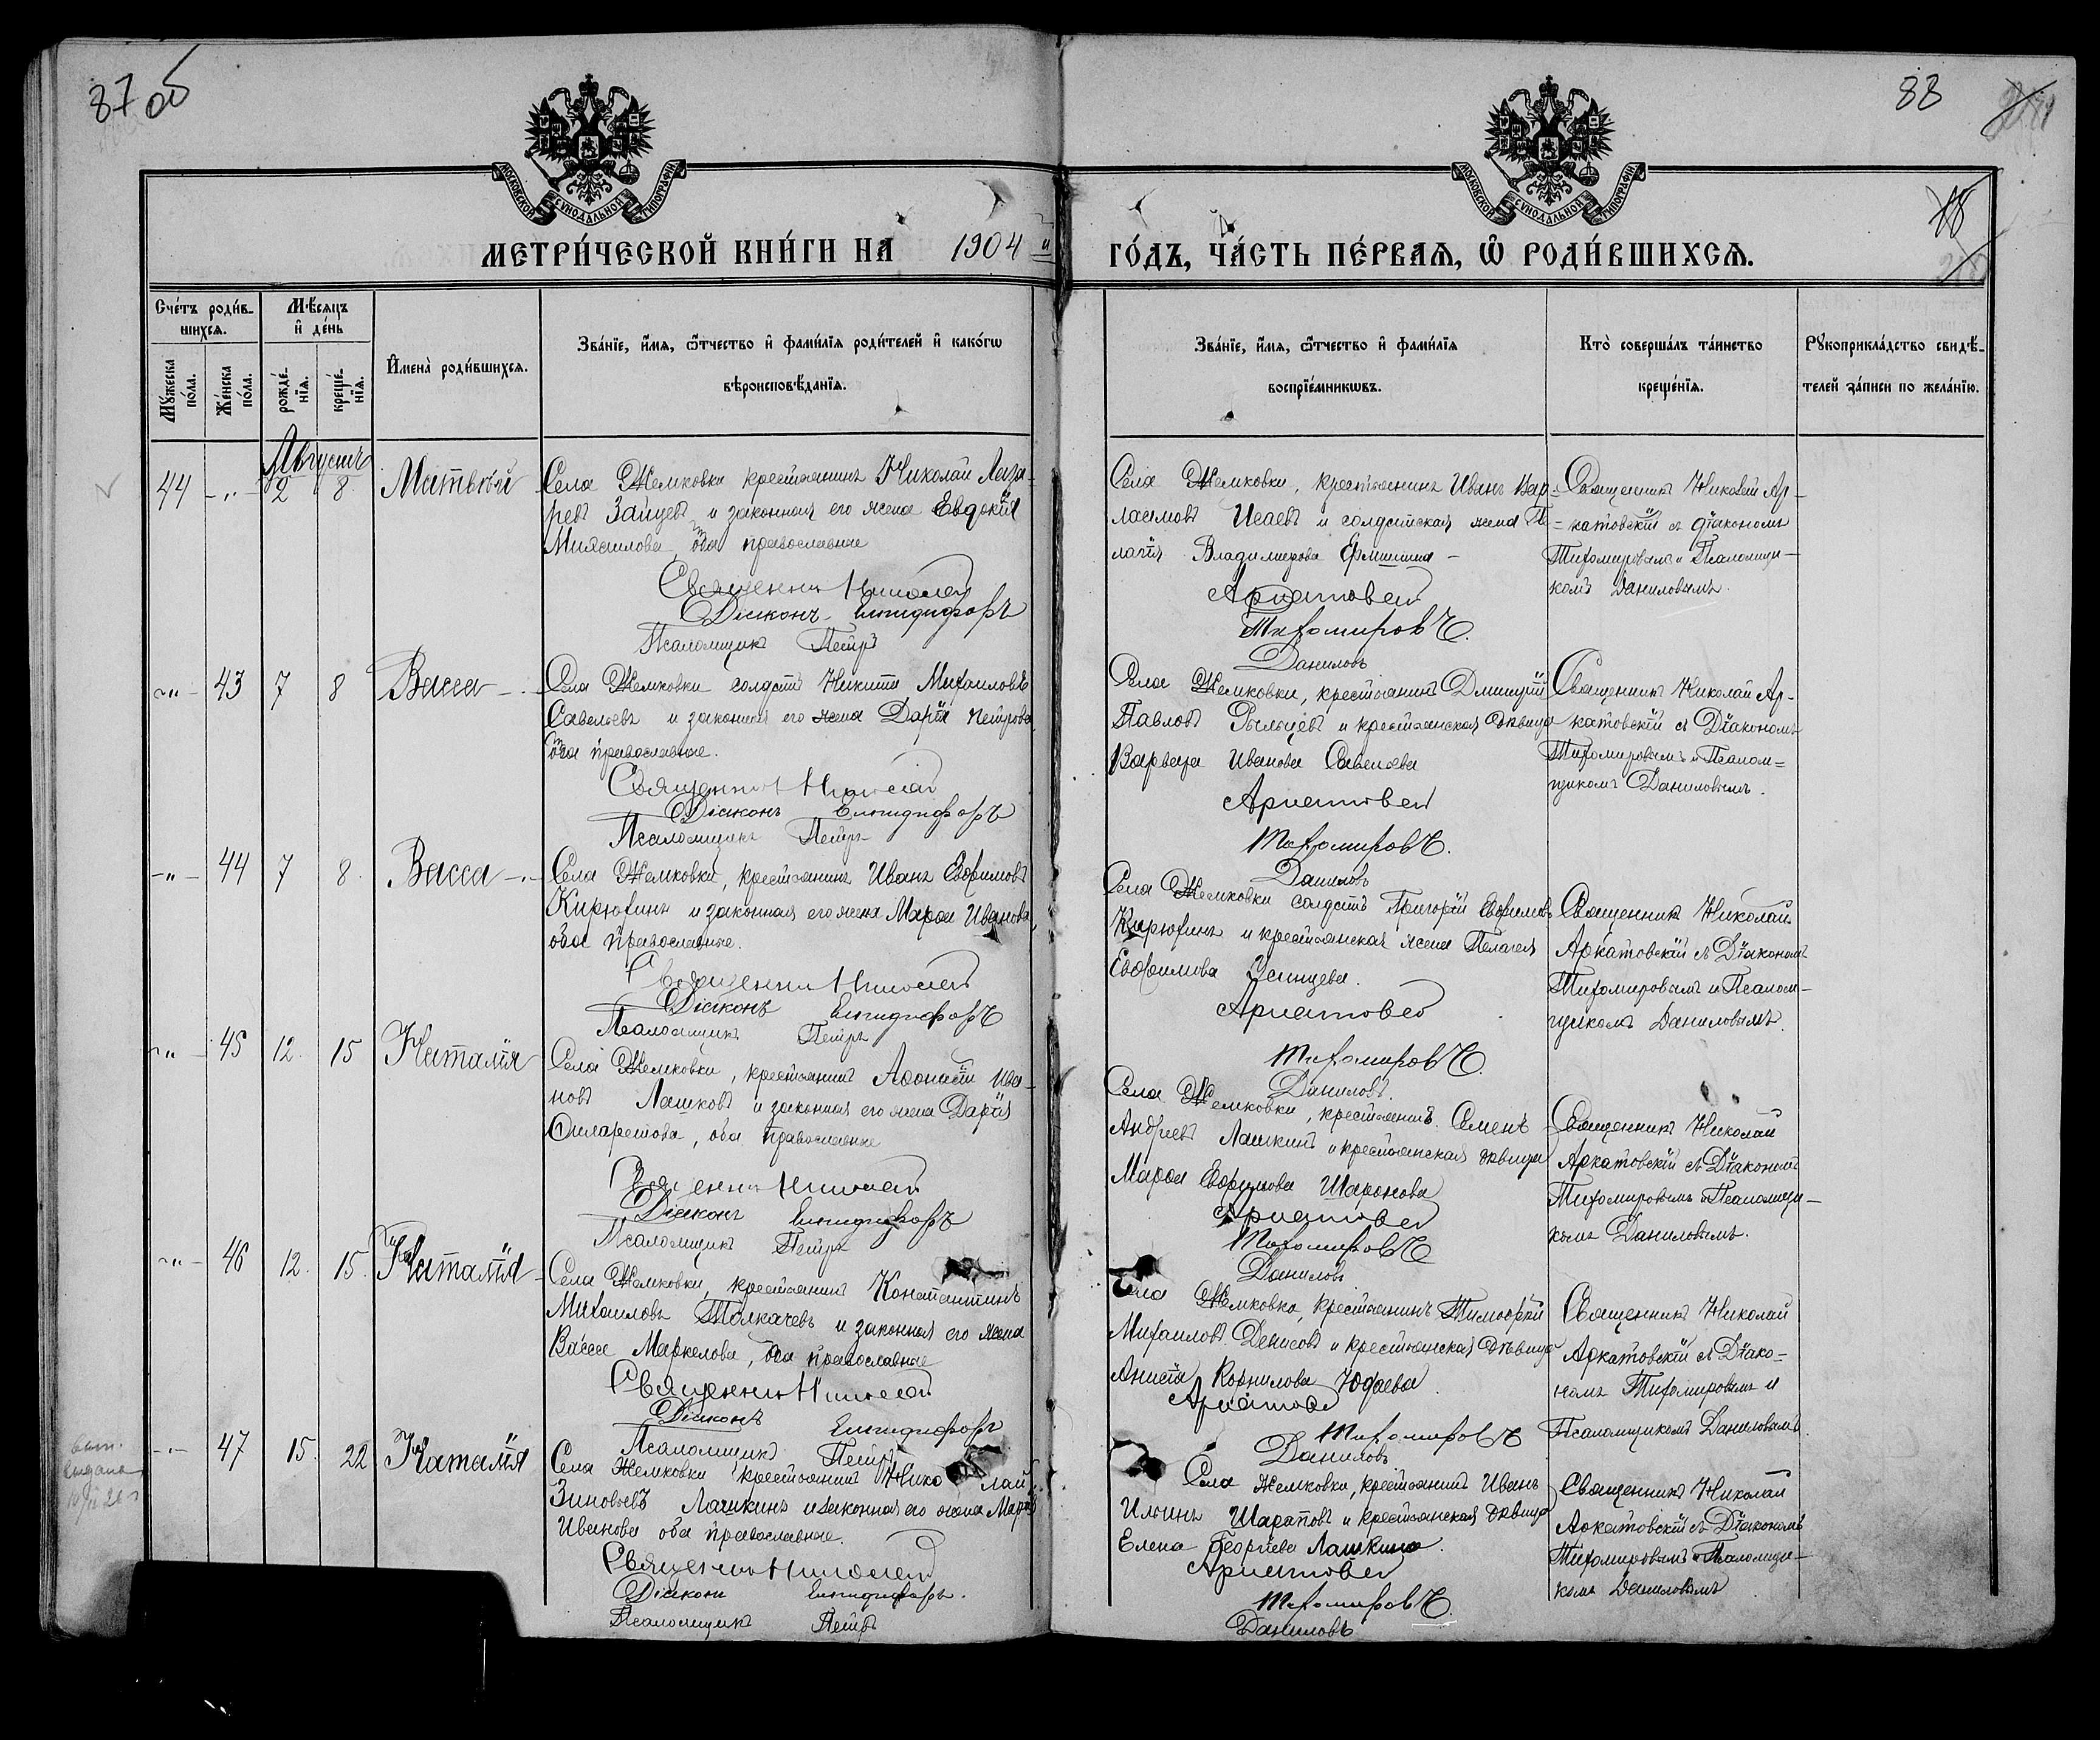 87 об
88
МОСКОВСКОЙ СѴНОДАЛЬНОЙ ТИПОГРАФІИ
МОСКОВСКОЙ СѴНОДАЛЬНОЙ ТИПОГРАФІИ
МЕТРИ́ЧЕСКОЙ КНИ́ГИ НА 1904 й
ГО́ДЪ, ЧА́СТЬ ПЕ́РВАѦ, Ѡ҆ РОДИ́ВШИХСѦ.
Сче́тъ роди́в-
шихсѧ.
Мꙋ́жеска по́ла.
Же́нска по́ла.
Мѣ́сѧцъ
и҆ де́нь
рожде́-
нїѧ.
креще́-
нїѧ.
И҆мена̀ роди́вшихсѧ.
Зва́нїе, и҆́мѧ, ѻ҆́тчество и҆ фами́лїѧ роди́телей и҆ како́гѡ
вѣроисповѣ́данїѧ.
Зва́нїе, и҆́мѧ, ѻ҆́тчество и҆ фами́лїѧ
воспрїе́мникѡвъ.
Кто̀ соверша́лъ та́инство
креще́нїѧ.
Рꙋкоприкла́дство свидѣ́-
телей за́писи по жела́нїю.
Августъ
44 -„- 2 8 Матвѣй
Села Жемковки крестьянинъ Николай Лаза-
ревъ Зайцевъ и законная его жена Евдокія
оба православные
Священникъ Николай
Діаконъ Елпидифоръ
Псаломщикъ Петръ
Села Жемковки, крестьянинъ Иванъ Вар-
ламовъ Исаевъ и солдатская жена Пе-
лагія Владимирова
Аркатовскій
Тихомировъ.
Даниловъ
Священникъ Николай Ар-
катовскій съ діакономъ
Тихомировымъ и Псаломщи-
комъ Даниловымъ.
-„- 43 7 8 Васса
Села Жемковки солдатъ Никита Михаиловъ
Савельевъ и законная его жена Дарія Петрова
оба православные.
Священникъ Николай
Діаконъ Елпидифоръ
Псаломщикъ Петръ
Села Жемковки, крестьянинъ Дмитрій
Павловъ и крестьянская дѣвица
Варвара Иванова Савельева
Аркатовскій
Тихомировъ.
Даниловъ
Священникъ Николай Ар-
катовскій съ Діакономъ
Тихомировымъ и Псалом=
щикомъ Даниловымъ.
-„- 44 7 8. Васса
Села Жемковки, крестьянинъ Иванъ Евфимовъ
Кирюхинъ и законная его жена Марѳа Иванова,
оба православные.
Священникъ Николай
Діаконъ Елпидифоръ
Псаломщикъ Петръ
Села Жемковки солдатъ Григорій Евфимовъ
Кирюхинъ и крестьянская жена Пелагея
Евфимова
Аркатовскій
Тихомировъ.
Даниловъ.
Священникъ Николай
Аркатовскій съ Діакономъ
Тихомировымъ и Псалом-
щикомъ Даниловымъ.
-„- 45 12. 15 Наталія
Села Жемковки, крестьянинъ Аѳонасій Ива-
новъ Лашковъ и законная его жена Дарія
Филаретова, оба православные
Священникъ Николай
Діаконъ Елпидифоръ
Псаломщикъ Петръ
Села Жемковки, крестьянинъ Семенъ
Андреевъ Лашкинъ и крестьянская дѣвица
Марѳа Евфимова Шаронова
Аркатовскій
Тихомировъ
Даниловъ
Священникъ Николай
Аркатовскій съ Діакономъ
Тихомировымъ и Псаломщи-
комъ Даниловымъ.
-„- 46 12. 15. Наталія
Села Жемковки, крестьянинъ Константинъ
Михаиловъ Толкачевъ и законная его жена
Васса Маркелова, оба православные
Священникъ Николай
Діаконъ Елпидифоръ
Псаломщикъ Петръ
Села Жемковки, крестьянинъ Тимоѳей
Михаиловъ Денисовъ и крестьянская дѣвица
Анисія Корнилова Юдаева
Аркатовскій
Тихомировъ
Даниловъ
Священникъ Николай
Аркатовскій съ Діако=
номъ Тихомировымъ и
Псаломщикомъ Даниловымъ.
-„- 47 15. 22 Наталія
Села Жемковки крестьянинъ Николай
Зиновьевъ Лашкинъ и законная его жена Марія
Иванова оба православные.
Священникъ Николай
Діаконъ Елпидифоръ.
Псаломщикъ Петръ
Села Жемковки, крестьянинъ Иванъ
Ильинъ Шараповъ и крестьянская дѣвица
Елена Георгіева Лашкина.
Аркатовскій
Тихомировъ.
Даниловъ
Священникъ Николай
Аркатовскій съ Діакономъ
Тихомировымъ и Псаломщи-
комъ Даниловымъ